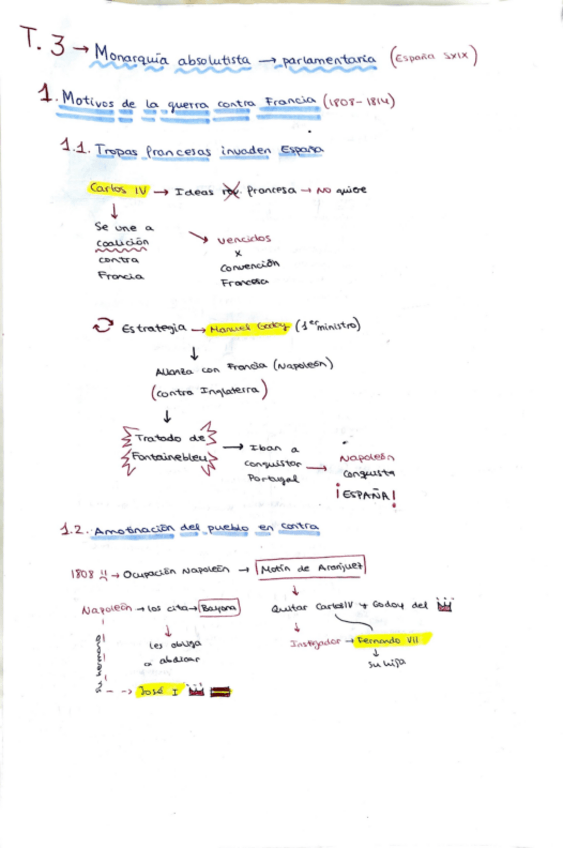 T. 3 → Monarquía absolutista → parlamentaria (España SXIX)
1. Motivos de la guerra contra Francia (1808-1814)
1.1. Tropas francesas invaden España
Carlos IV → Ideas rev. francesa → NO quiere
Se une a
coalición
contra
Francia
vencidos
x
Convención
Francesa
Estrategia → Manuel Godoy (1er ministro)
Alianza con Francia (Napoleón)
(contra Inglaterra)
Tratado de
Fontainebleu
→ Iban a
conquistar
Portugal
→ Napoleón
conquista
¡ESPAÑA!
1.2. Amotinación del pueblo en contra
1808 !! → Ocupación Napoleón → Motín de Aranjuez
Napoleón → los cita → Bayona
Quitar Carlos IV y Godoy del
les obliga
a abdicar
Instigador → Fernando VII
su hijo
su hermano
José I